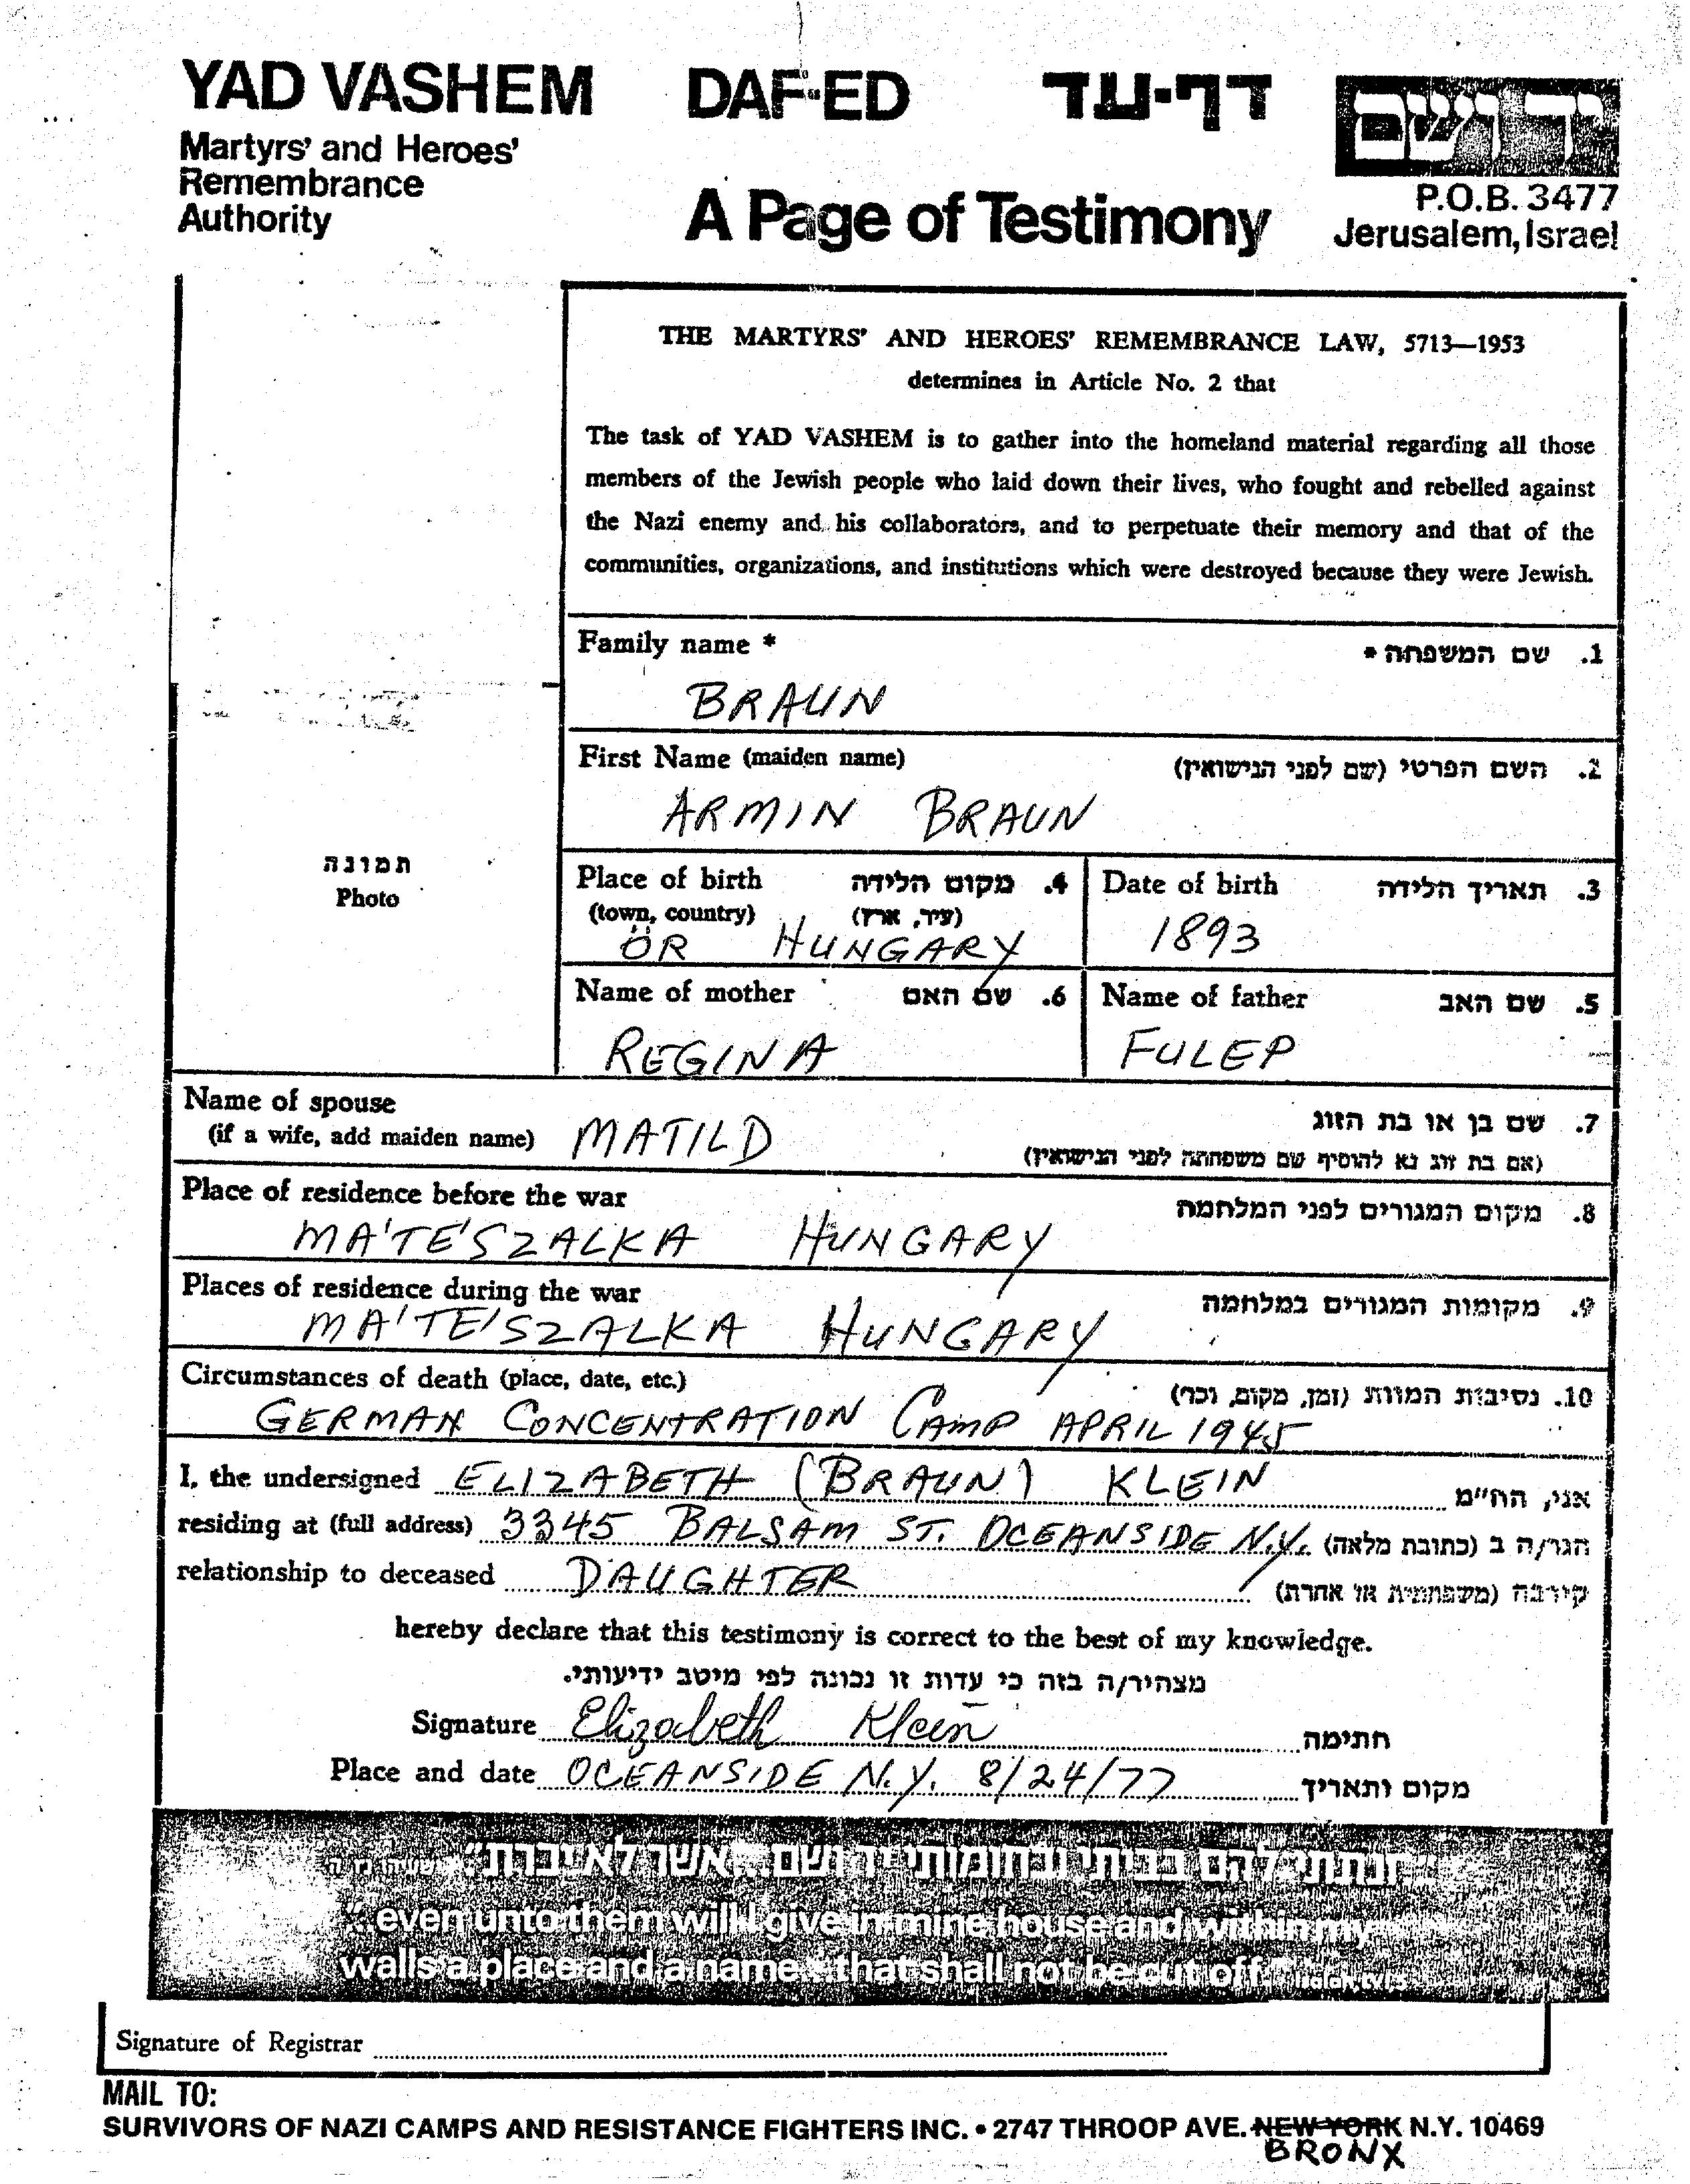 YAD VASHEM DAF-ED דף-עד ידושם
Martyrs' and Heroes'
Remembrance
Authority
A Page of Testimony
P.O.B. 3477
Jerusalem, Israel
THE MARTYRS' AND HEROES' REMEMBRANCE LAW, 5713—1953
determines in Article No. 2 that
The task of YAD VASHEM is to gather into the homeland material regarding all those
members of the Jewish people who laid down their lives, who fought and rebelled against
the Nazi enemy and his collaborators, and to perpetuate their memory and that of the
communities, organizations, and institutions which were destroyed because they were Jewish.
Family name * 1. שם המשפחה *
BRAUN
First Name (maiden name) 2. השם הפרטי (שם לפני הנישואין)
ARMIN BRAUN
תמונה
Photo
Place of birth 4. מקום הלידה
(town, country) (עיר, ארץ)
ÖR HUNGARY
Date of birth 3. תאריך הלידה
1893
Name of mother 6. שם האם
REGINA
Name of father 5. שם האב
FULEP
Name of spouse 7. שם בן או בת הזוג
(if a wife, add maiden name) MATILD (אם בת זוג נא להוסיף שם משפחתה לפני הנישואין)
Place of residence before the war 8. מקום המגורים לפני המלחמה
MA'TE'SZALKA HUNGARY
Places of residence during the war 9. מקומות המגורים במלחמה
MA'TE'SZALKA HUNGARY
Circumstances of death (place, date, etc.) 10. נסיבות המוות (זמן, מקום, וכו')
GERMAN CONCENTRATION CAMP APRIL 1945
I, the undersigned ELIZABETH (BRAUN) KLEIN אני, הח"מ
residing at (full address) 3345 BALSAM ST. OCEANSIDE N.Y. הגר/ה ב (כתובת מלאה)
relationship to deceased DAUGHTER קירבה (משפחתית או אחרת)
hereby declare that this testimony is correct to the best of my knowledge.
מצהיר/ה בזה כי עדות זו נכונה לפי מיטב ידיעותי.
Signature Elizabeth Klein חתימה
Place and date OCEANSIDE N.Y. 8/24/77 מקום ותאריך
ונתתי להם בביתי ובחומותי יד ושם... אשר לא יכרת" ישעיהו נו ה
"...even unto them will I give in mine house and within my
walls a place and a name... that shall not be cut off." Isaiah, lvi, 5
Signature of Registrar
MAIL TO:
SURVIVORS OF NAZI CAMPS AND RESISTANCE FIGHTERS INC. • 2747 THROOP AVE. NEW YORK N.Y. 10469
BRONX